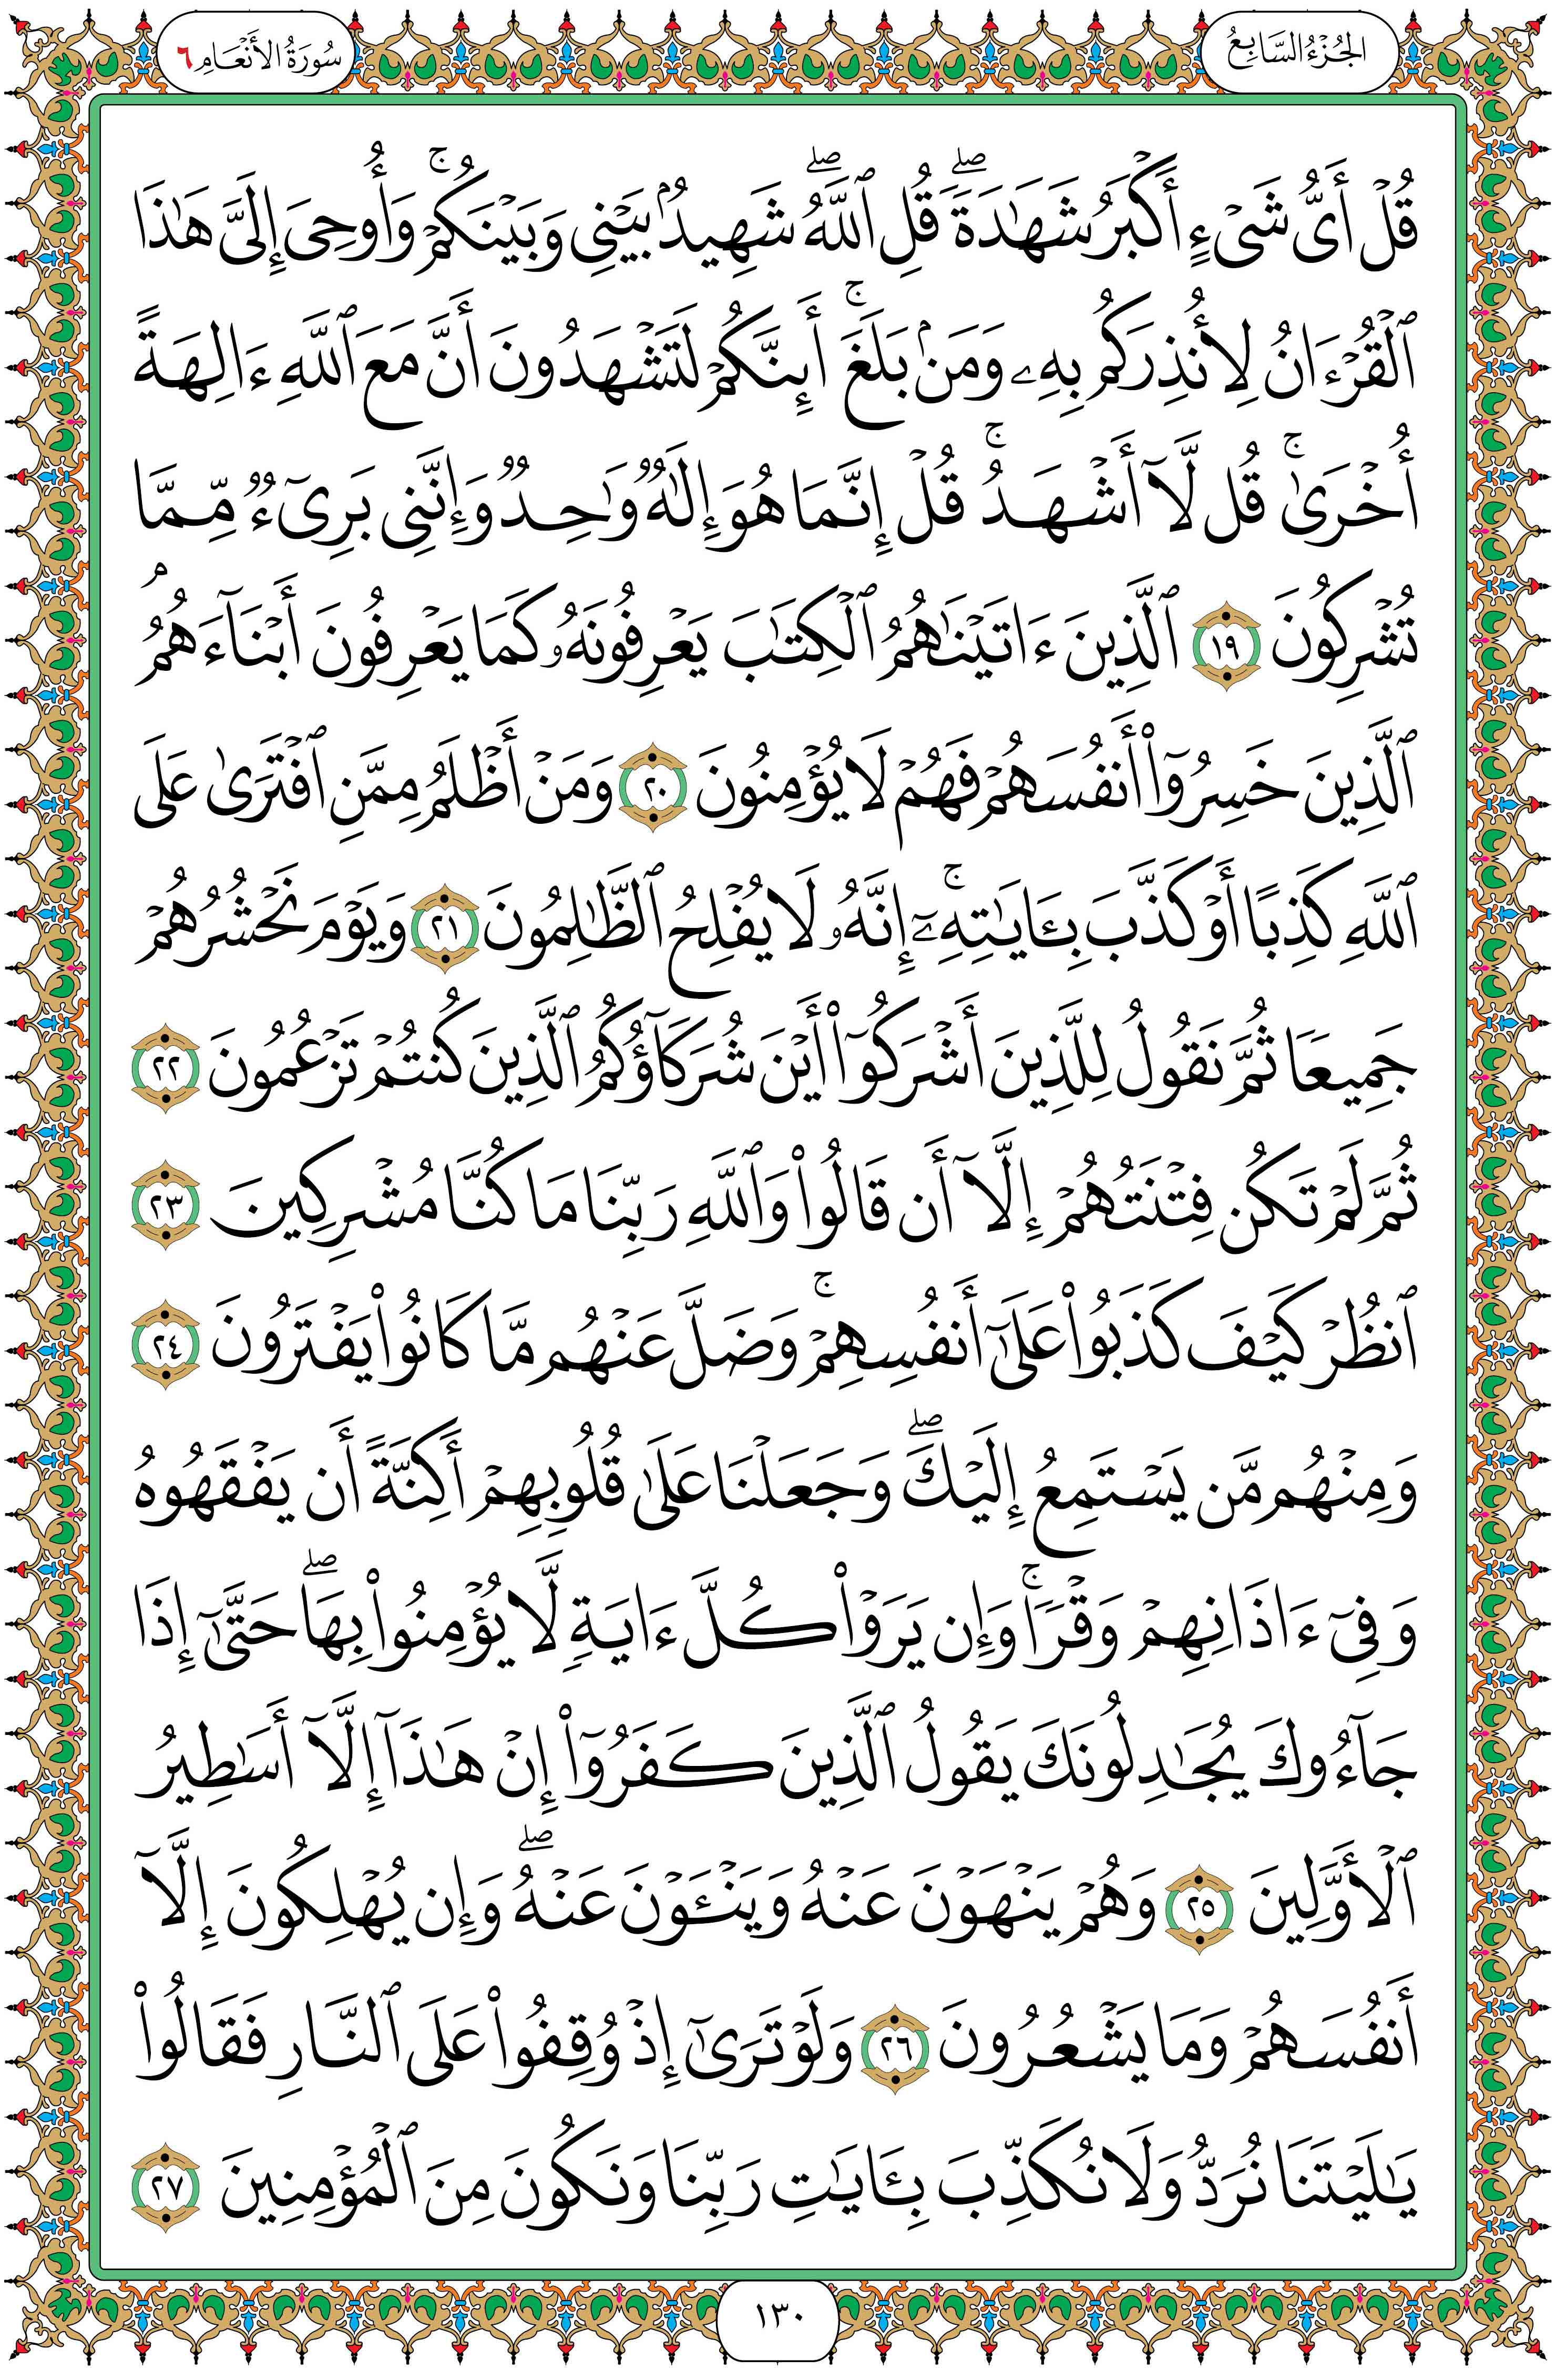 الجُزْءُ السَّابِعُ
سُورَةُ الأَنْعَامِ ٦
قُلْ أَىُّ شَىْءٍ أَكْبَرُ شَهَٰدَةً ۖ قُلِ ٱللَّهُ ۖ شَهِيدٌۢ بَيْنِى وَبَيْنَكُمْ ۚ وَأُوحِىَ إِلَىَّ هَٰذَا
ٱلْقُرْءَانُ لِأُنذِرَكُم بِهِۦ وَمَنۢ بَلَغَ ۚ أَئِنَّكُمْ لَتَشْهَدُونَ أَنَّ مَعَ ٱللَّهِ ءَالِهَةً
أُخْرَىٰ ۚ قُل لَّآ أَشْهَدُ ۚ قُلْ إِنَّمَا هُوَ إِلَٰهٌ وَٰحِدٌ وَإِنَّنِى بَرِىٓءٌ مِّمَّا
تُشْرِكُونَ ١٩ ٱلَّذِينَ ءَاتَيْنَٰهُمُ ٱلْكِتَٰبَ يَعْرِفُونَهُۥ كَمَا يَعْرِفُونَ أَبْنَآءَهُمُ ۘ
ٱلَّذِينَ خَسِرُوٓا۟ أَنفُسَهُمْ فَهُمْ لَا يُؤْمِنُونَ ٢٠ وَمَنْ أَظْلَمُ مِمَّنِ ٱفْتَرَىٰ عَلَى
ٱللَّهِ كَذِبًا أَوْ كَذَّبَ بِـَٔايَٰتِهِۦٓ ۚ إِنَّهُۥ لَا يُفْلِحُ ٱلظَّٰلِمُونَ ٢١ وَيَوْمَ نَحْشُرُهُمْ
جَمِيعًا ثُمَّ نَقُولُ لِلَّذِينَ أَشْرَكُوٓا۟ أَيْنَ شُرَكَآؤُكُمُ ٱلَّذِينَ كُنتُمْ تَزْعُمُونَ ٢٢
ثُمَّ لَمْ تَكُن فِتْنَتُهُمْ إِلَّآ أَن قَالُوا۟ وَٱللَّهِ رَبِّنَا مَا كُنَّا مُشْرِكِينَ ٢٣
ٱنظُرْ كَيْفَ كَذَبُوا۟ عَلَىٰٓ أَنفُسِهِمْ ۚ وَضَلَّ عَنْهُم مَّا كَانُوا۟ يَفْتَرُونَ ٢٤
وَمِنْهُم مَّن يَسْتَمِعُ إِلَيْكَ ۖ وَجَعَلْنَا عَلَىٰ قُلُوبِهِمْ أَكِنَّةً أَن يَفْقَهُوهُ
وَفِىٓ ءَاذَانِهِمْ وَقْرًا ۚ وَإِن يَرَوْا۟ كُلَّ ءَايَةٍ لَّا يُؤْمِنُوا۟ بِهَا ۖ حَتَّىٰٓ إِذَا
جَآءُوكَ يُجَٰدِلُونَكَ يَقُولُ ٱلَّذِينَ كَفَرُوٓا۟ إِنْ هَٰذَآ إِلَّآ أَسَٰطِيرُ
ٱلْأَوَّلِينَ ٢٥ وَهُمْ يَنْهَوْنَ عَنْهُ وَيَنْـَٔوْنَ عَنْهُ ۖ وَإِن يُهْلِكُونَ إِلَّآ
أَنفُسَهُمْ وَمَا يَشْعُرُونَ ٢٦ وَلَوْ تَرَىٰٓ إِذْ وُقِفُوا۟ عَلَى ٱلنَّارِ فَقَالُوا۟
يَٰلَيْتَنَا نُرَدُّ وَلَا نُكَذِّبَ بِـَٔايَٰتِ رَبِّنَا وَنَكُونَ مِنَ ٱلْمُؤْمِنِينَ ٢٧
١٣٠